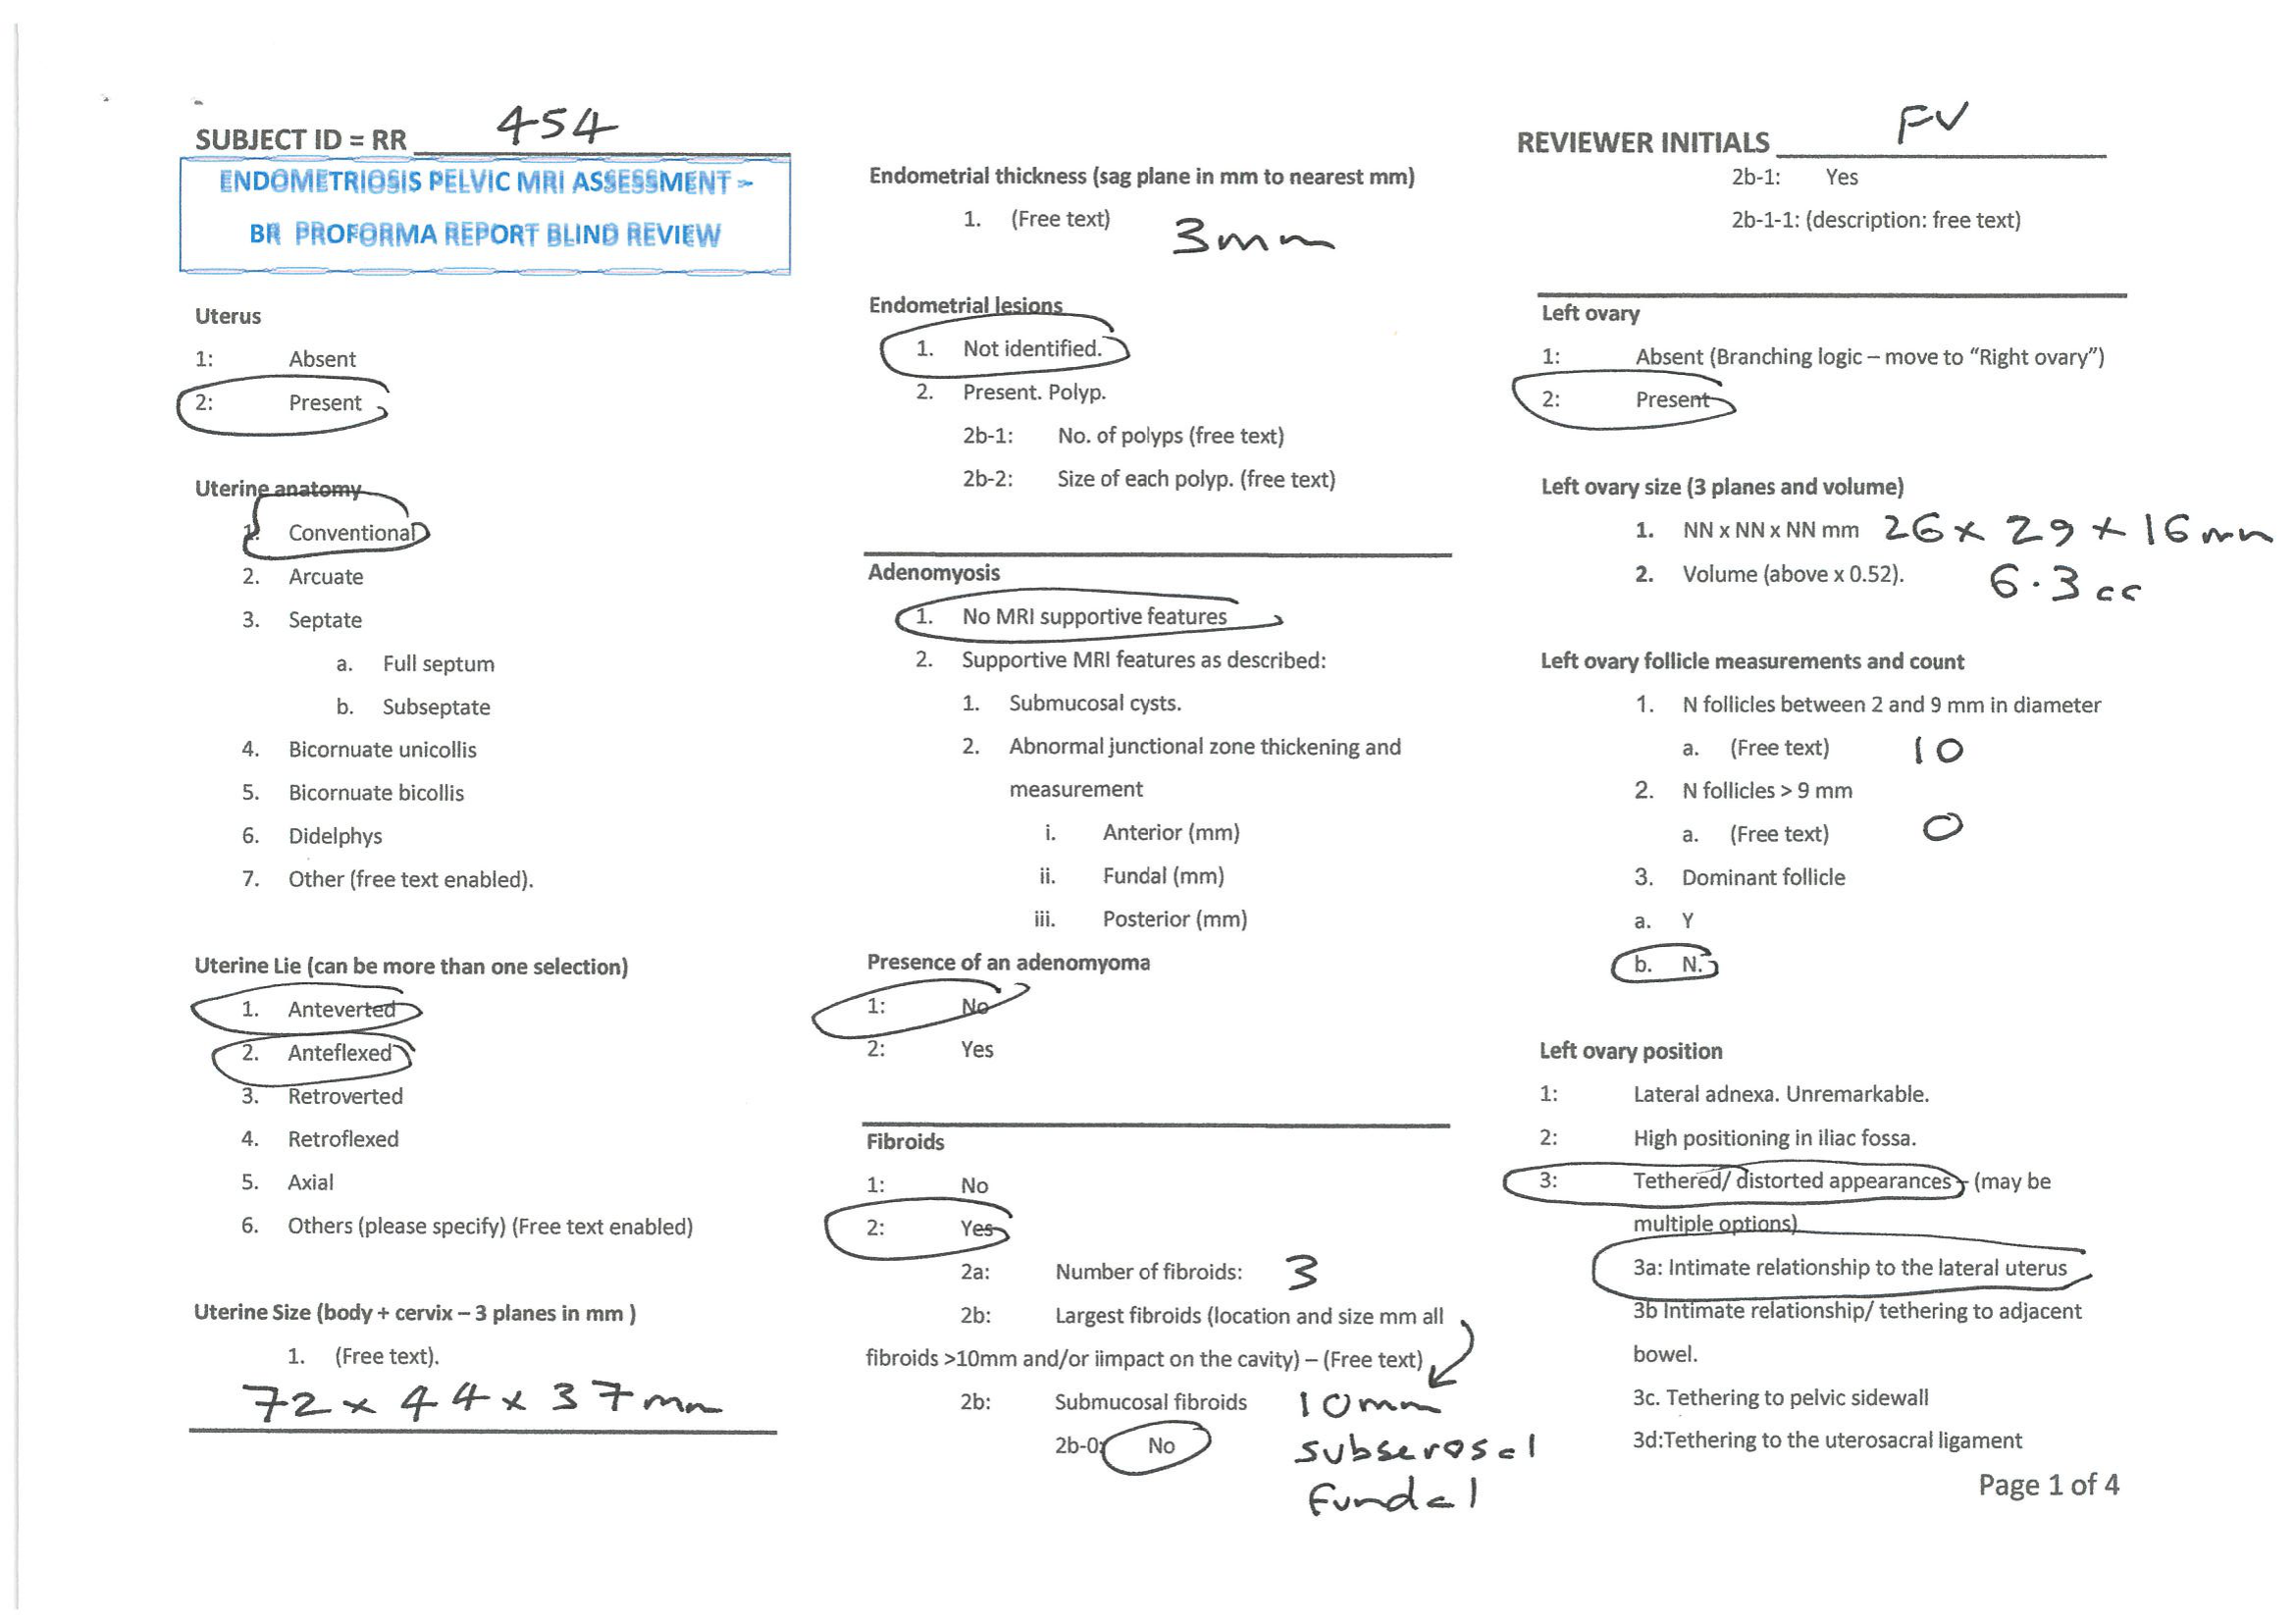 SUBJECT ID = RR 454
ENDOMETRIOSIS PELVIC MRI ASSESSMENT -
BR PROFORMA REPORT BLIND REVIEW
Uterus
1: Absent
2: Present
Uterine anatomy
1. Conventional
2. Arcuate
3. Septate
a. Full septum
b. Subseptate
4. Bicornuate unicollis
5. Bicornuate bicollis
6. Didelphys
7. Other (free text enabled).
Uterine Lie (can be more than one selection)
1. Anteverted
2. Anteflexed
3. Retroverted
4. Retroflexed
5. Axial
6. Others (please specify) (Free text enabled)
Uterine Size (body + cervix – 3 planes in mm )
1. (Free text).
72 x 44 x 37mm
Endometrial thickness (sag plane in mm to nearest mm)
1. (Free text) 3mm
Endometrial lesions
1. Not identified.
2. Present. Polyp.
2b-1: No. of polyps (free text)
2b-2: Size of each polyp. (free text)
Adenomyosis
1. No MRI supportive features
2. Supportive MRI features as described:
1. Submucosal cysts.
2. Abnormal junctional zone thickening and
measurement
i. Anterior (mm)
ii. Fundal (mm)
iii. Posterior (mm)
Presence of an adenomyoma
1: No
2: Yes
Fibroids
1: No
2: Yes
2a: Number of fibroids: 3
2b: Largest fibroids (location and size mm all
fibroids >10mm and/or iimpact on the cavity) – (Free text)
2b: Submucosal fibroids 10mm
2b-0: No subserosal
Fundal
REVIEWER INITIALS FV
2b-1: Yes
2b-1-1: (description: free text)
Left ovary
1: Absent (Branching logic – move to “Right ovary”)
2: Present
Left ovary size (3 planes and volume)
1. NN x NN x NN mm 26 x 29 x 16mm
2. Volume (above x 0.52). 6.3cc
Left ovary follicle measurements and count
1. N follicles between 2 and 9 mm in diameter
a. (Free text) 10
2. N follicles > 9 mm
a. (Free text) 0
3. Dominant follicle
a. Y
b. N.
Left ovary position
1: Lateral adnexa. Unremarkable.
2: High positioning in iliac fossa.
3: Tethered/ distorted appearances – (may be
multiple options)
3a: Intimate relationship to the lateral uterus
3b Intimate relationship/ tethering to adjacent
bowel.
3c. Tethering to pelvic sidewall
3d:Tethering to the uterosacral ligament
Page 1 of 4